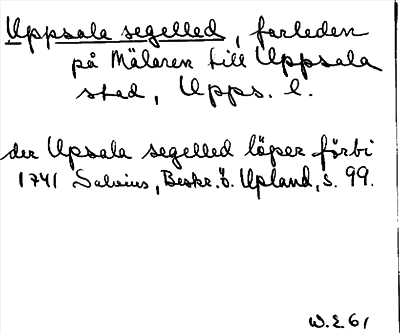 Uppsala segelled, farleden
på Mälaren till Uppsala
stad, Upps. l.
der Upsala segelled löper förbi
1741 Salvius, Beskr. ö. Upland, s. 99.
W.E. 61